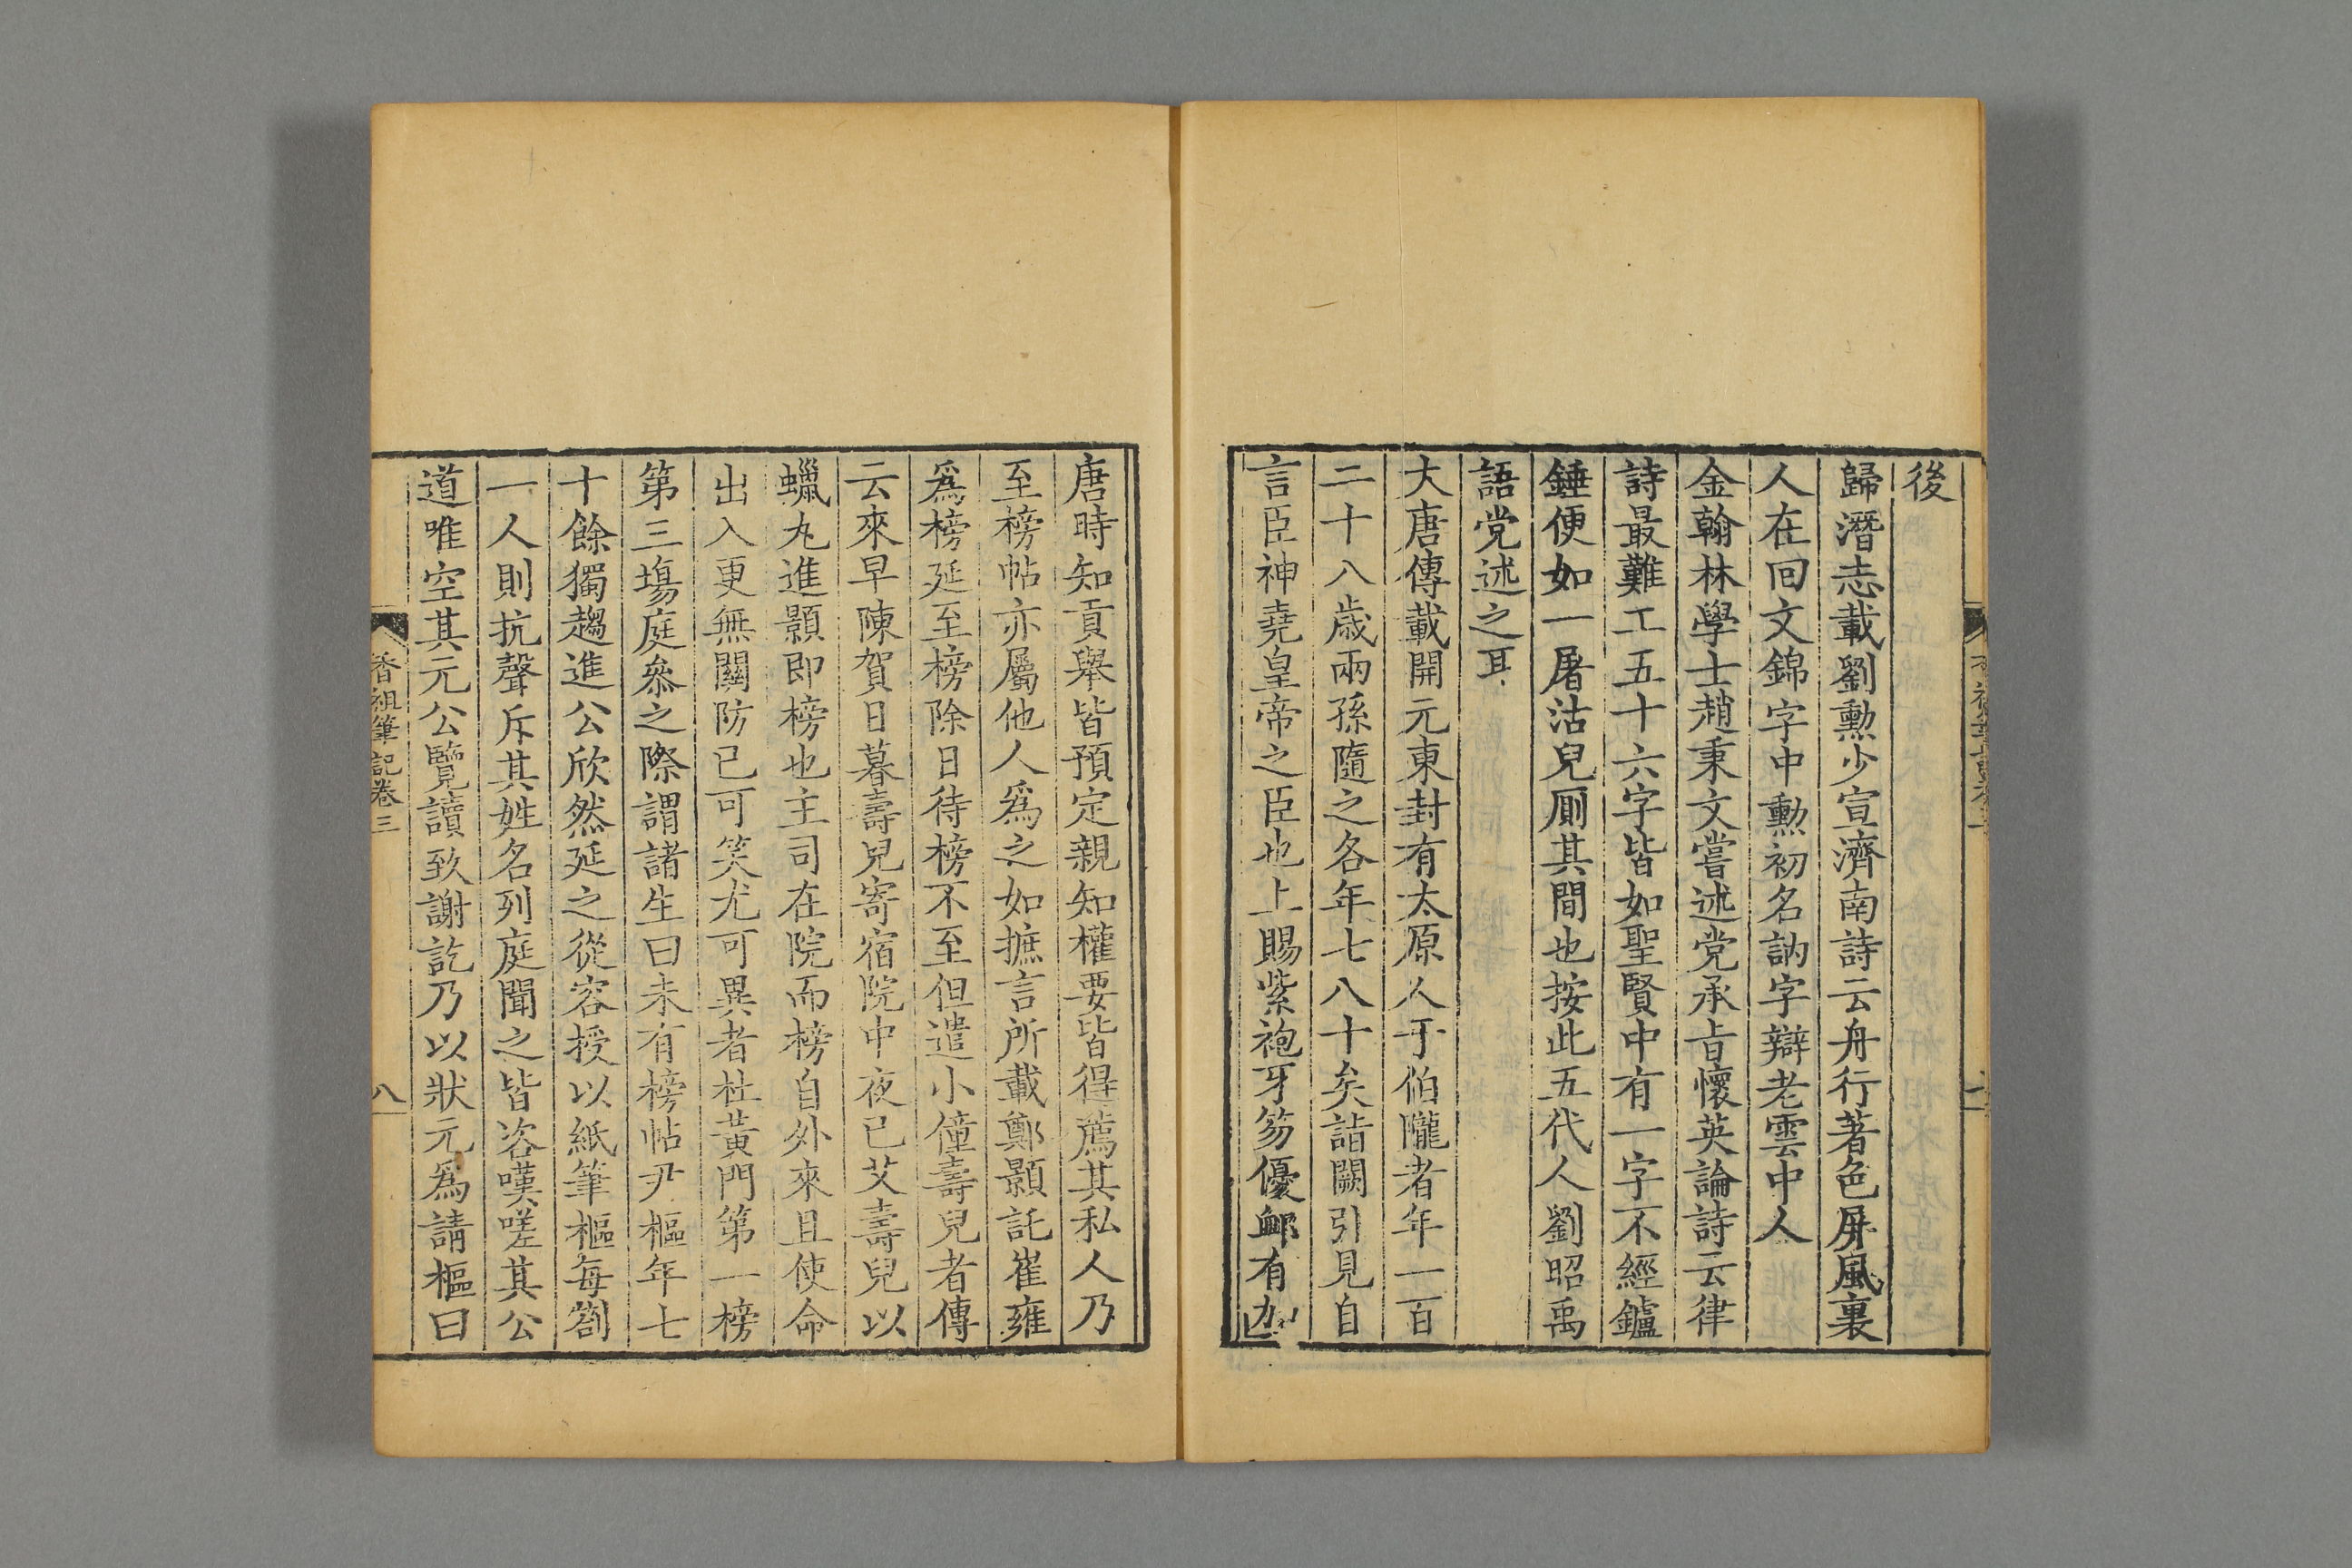 後
歸潛志載劉勲少宣濟南詩云舟行著色屏風裏
人在回文錦字中勲初名訥字辯老雲中人
金翰林學士趙秉文嘗述党承旨懷英論詩云律
詩最難工五十六字皆如聖賢中有一字不經鑪
錘便如一屠沽兒厠其間也按此五代人劉昭禹
語党述之耳
大唐傳載開元東封有太原人于伯隴者年一百
二十八歳兩孫隨之各年七八十矣詣闕引見自
言臣神堯皇帝之臣也上賜紫袍牙笏優䘏有加
唐時知貢舉皆預定親知權要皆得薦其私人乃
至榜帖亦屬他人爲之如摭言所載鄭顥託崔雍
爲榜延至榜除日待榜不至但遣小僮壽兒者傳
云來早陳賀日暮壽兒寄宿院中夜已艾壽兒以
蠟丸進顥即榜也主司在院而榜自外來且使命
出入更無關防已可笑尤可異者杜黃門第一榜
第三塲庭叅之際謂諸生曰未有榜帖尹樞年七
十餘獨趨進公欣然延之從容授以紙筆樞每劄
一人則抗聲斥其姓名列庭聞之皆咨嘆嗟其公
道唯空其元公覽讀致謝訖乃以狀元爲請樞曰
香祖筆記卷三
八